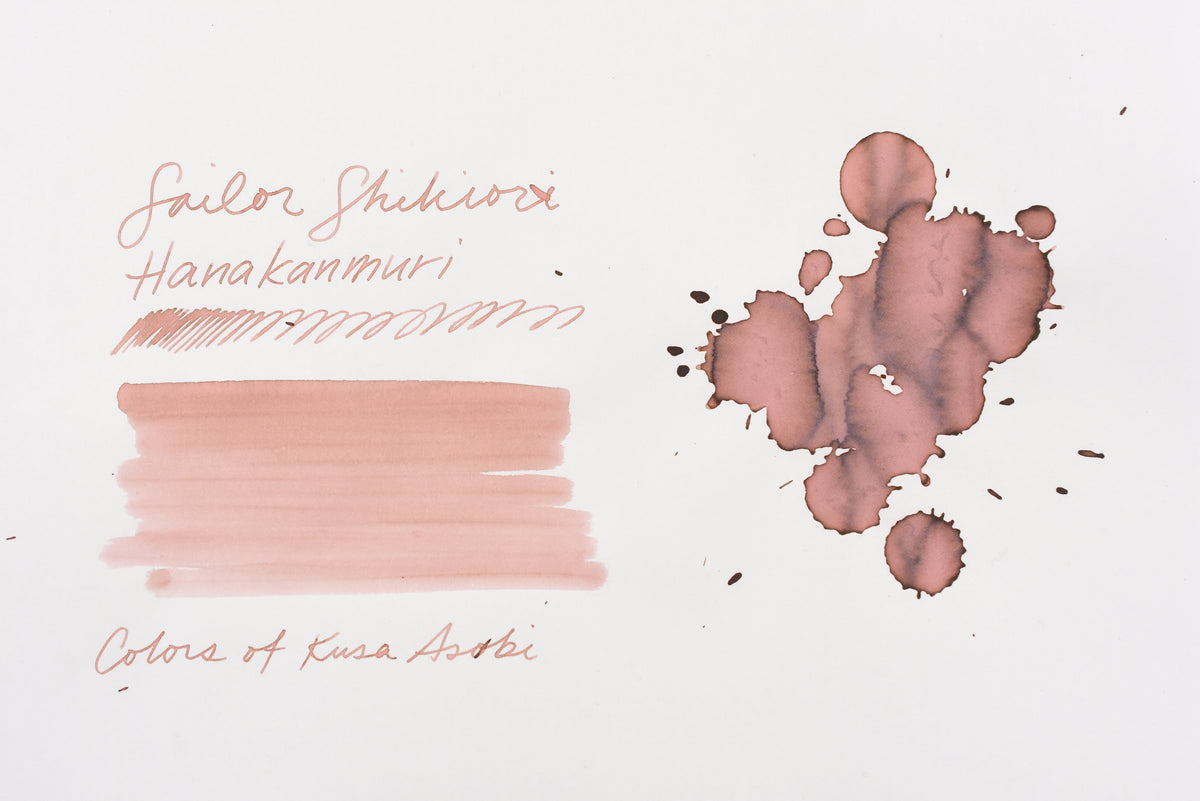 Sailor Shikiori
Hanakanmuri
Colors of Kusa Asobi